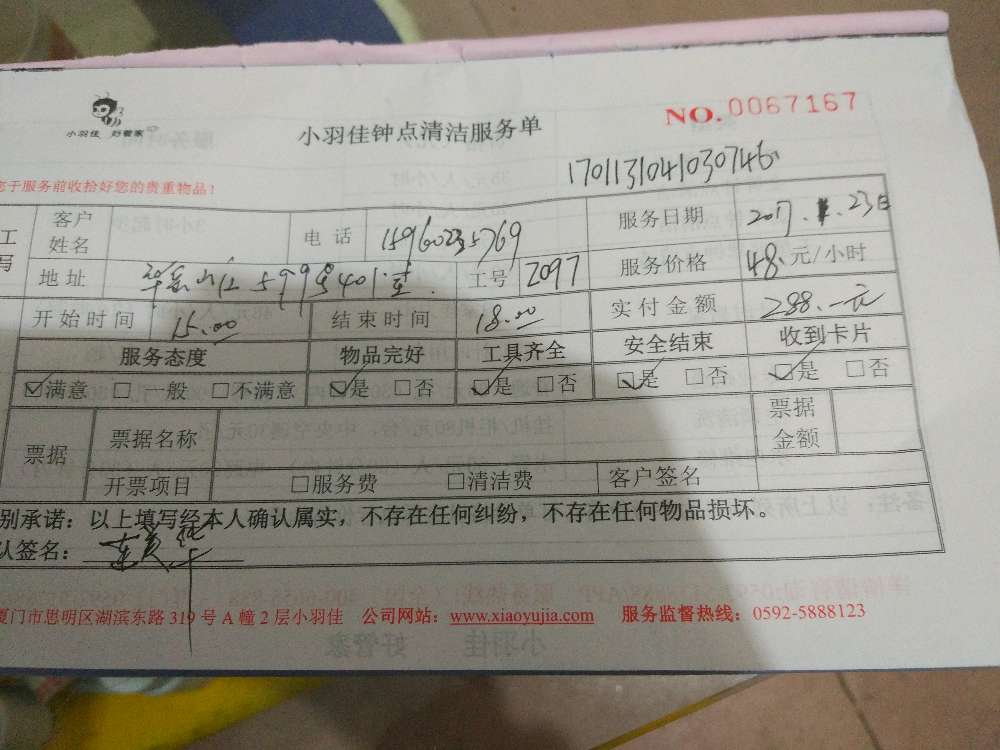 小羽佳 好管家
小羽佳钟点清洁服务单
NO.0067167
1701131041030746
您于服务前收拾好您的贵重物品!
工
写
客户
姓名
电话
服务日期 2017.1.23日
地址 5999号401室
工号 2097
服务价格 48.元/小时
开始时间 15:00
结束时间 18:00
实付金额 288.一元
服务态度 物品完好 工具齐全 安全结束 收到卡片
☑满意 □一般 □不满意 ☑是 □否 ☑是 □否 ☑是 □否 ☑是 □否
票据
票据名称
票据
金额
开票项目 □服务费 □清洁费 客户签名
别承诺:以上填写经本人确认属实,不存在任何纠纷,不存在任何物品损坏。
认签名:
厦门市思明区湖滨东路319号A幢2层小羽佳 公司网站:www.xiaoyujia.com 服务监督热线:0592-5888123